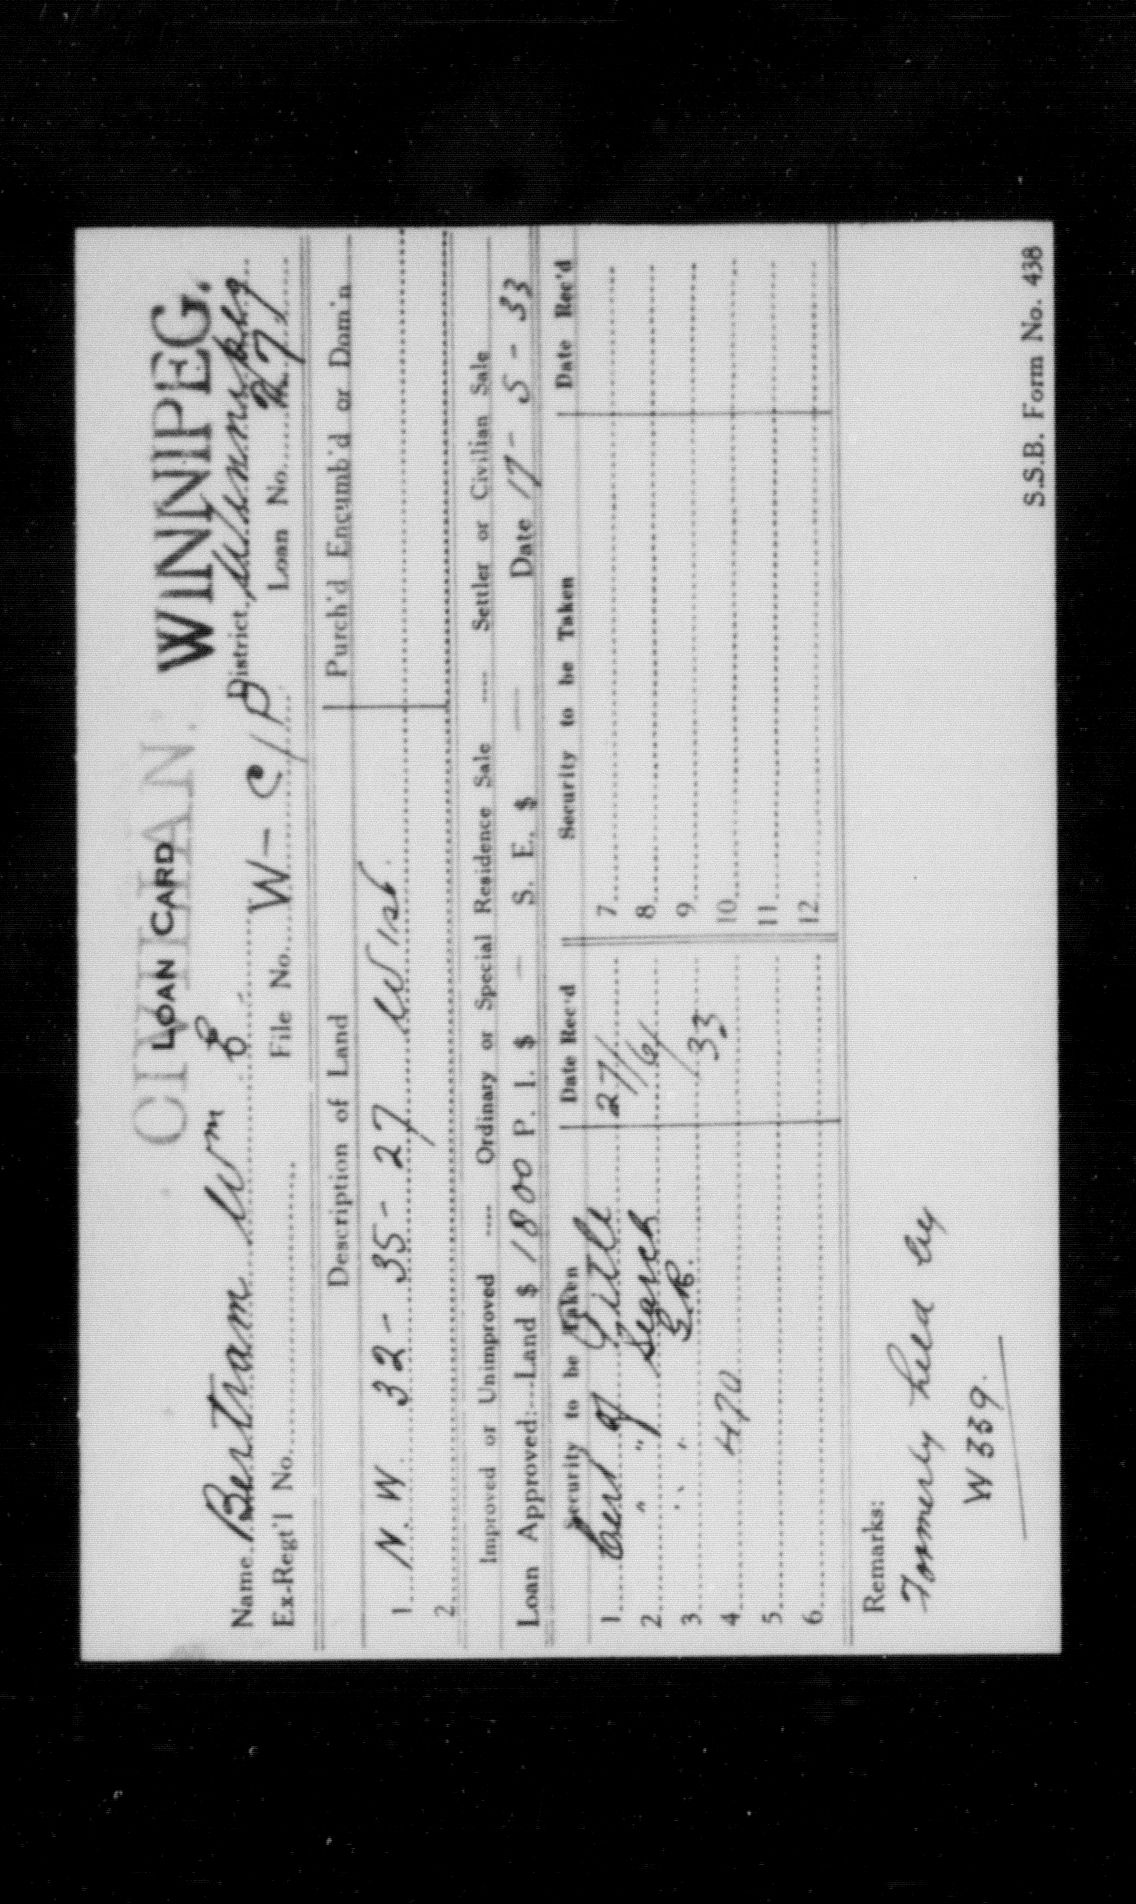 CIVILIAN. WINNIPEG.
LOAN CARD
Name Bertram Wm E. District Winnipeg
Ex-Regt'l No. File No. W- C/P Loan No. 271
Description of Land Purch'd Encumb'd or Dom'n
1 N.W. 32-35-27 W 1st
2
Improved or Unimproved ---- Ordinary or Special Residence Sale ---- Settler or Civilian Sale
Loan Approved:--Land $ 1800 P. I. $ — S. E. $ — Date 17-5-33
Security to be Taken Date Rec'd Security to be Taken Date Rec'd
1 Cert of Title 27/ 7
2 " " Search /6/ 8
3 " " G.R. /33 9
4 470 10
5 11
6 12
Remarks:
Formerly held by
W 339.
S.S.B. Form No. 438